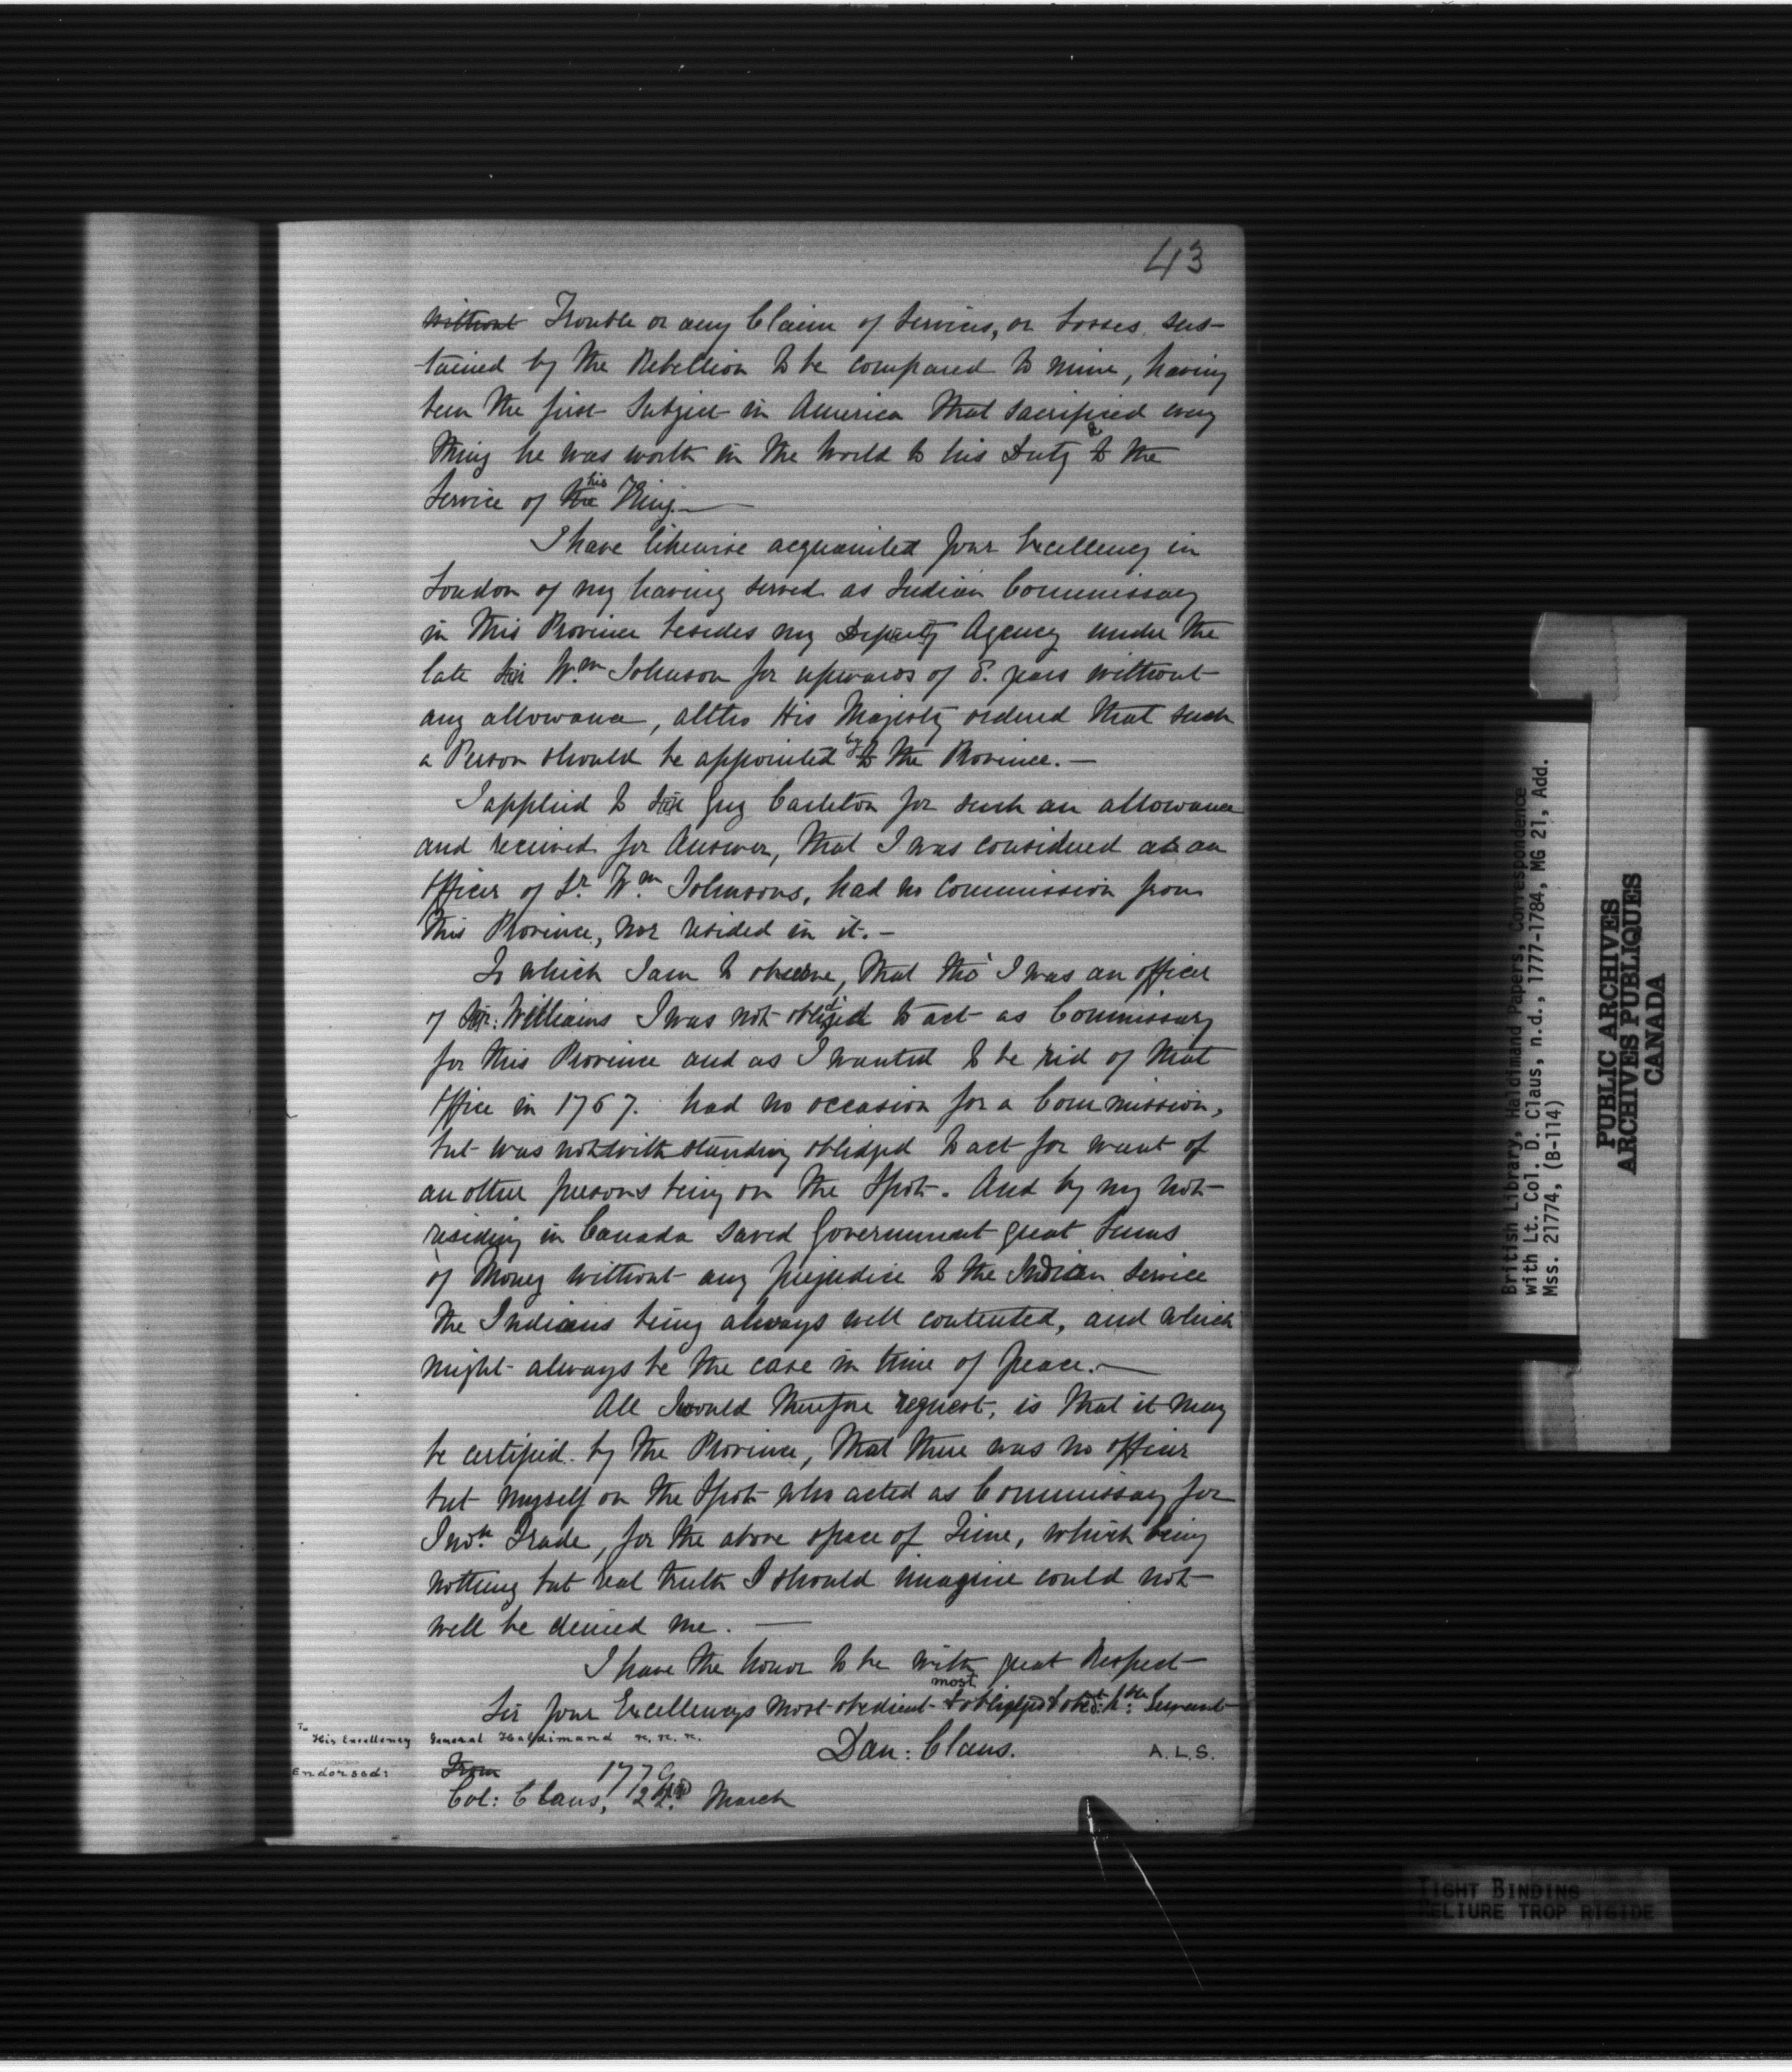 43
without Trouble or any Claim of Services, or Losses sus-
tained by the Rebellion to be compared to mine, having
been the first Subject in America that sacrificed every
thing he was worth in the World to his Duty & to the
Service of the his King.—
I have likewise acquainted Your Excellency in
London of my having served as Indian Commissary
in this Province besides my Deputy Agency under the
late Sir Wm Johnson for upwards of 8. years without
any allowance, altho His Majesty ordered that such
a Person should be appointed by to the Province.—
I applied to Sir Guy Carleton for such an allowance
and received for Answer, that I was considered as an
Officer of Sr. Wm Johnsons, had no Commission from
this Province, nor resided in it.—
To which I am to observe, that tho' I was an officer
of Sir: Williams I was not obliged to act as Commissary
for this Province and as I wanted to be rid of that
Office in 1767. had no occasion for a Commission,
but was notwithstanding oblidged to act for want of
an other persons being on the Spot. And by my not
residing in Canada saved Government great Sums
of Money without any prejudice to the Indian Service
the Indians being always well contented, and which
might always be the case in time of peace.—
All I would therefore request, is that it may
be certified by the Province, that there was no officer
but myself on the Spot who acted as Commissary for
Indn. Trade, for the above space of Time, which being
nothing but real truth I should imagine could not
well be denied me.—
I have the honor to be with great Respect
Sir Your Excellencys most obedient & most obliged & obedt. hble Servant
Dan: Claus.
A.L.S.
To His Excellency General Haldimand &c. &c. &c.
Endorsed: From 1779
Col: Claus, 22nd March
British Library, Haldimand Papers, Correspondence
with Lt. Col. D. Claus, n.d., 1777-1784, MG 21, Add.
Mss. 21774, (B-114)
PUBLIC ARCHIVES
ARCHIVES PUBLIQUES
CANADA
TIGHT BINDING
RELIURE TROP RIGIDE